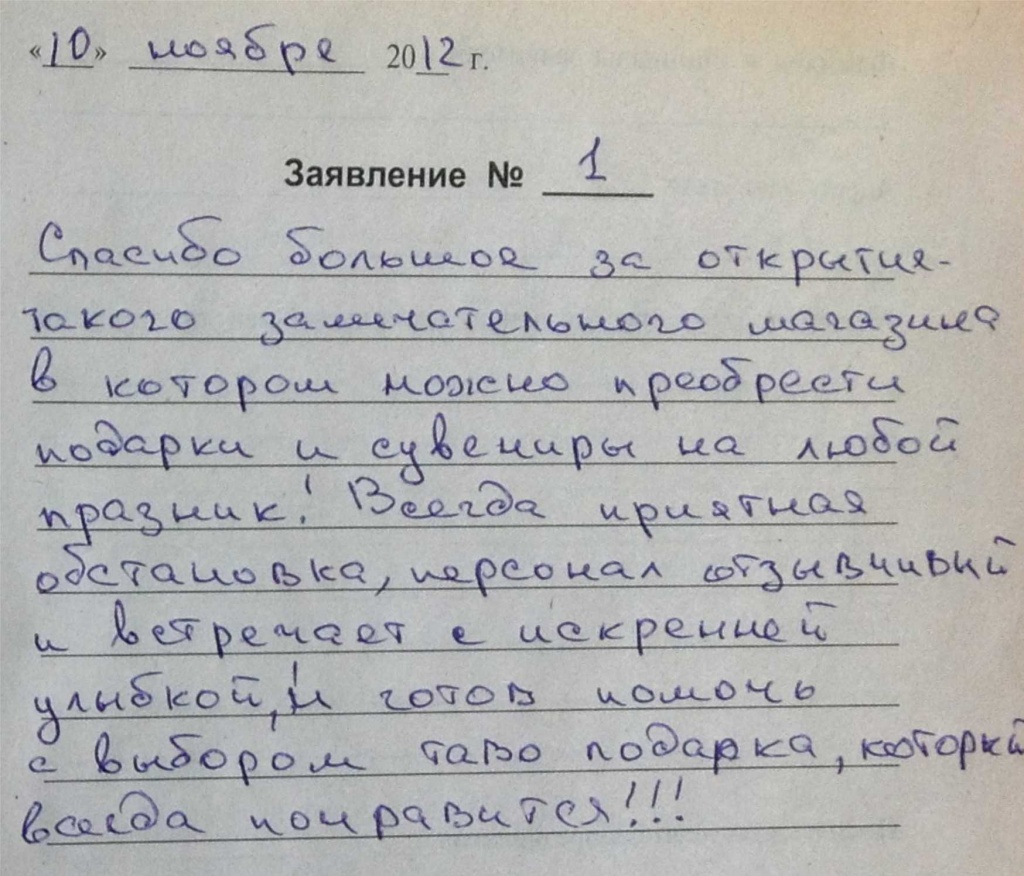 «10» ноября 2012 г.
Заявление № 1
Спасибо большое за открытие
такого замечательного магазина
в котором можно преобрести
подарки и сувениры на любой
празник! Всегда приятная
обстановка, персонал отзывчивый
и встречает с искренней
улыбкой, и готов помочь
с выбором таво подарка, который
всегда понравится!!!